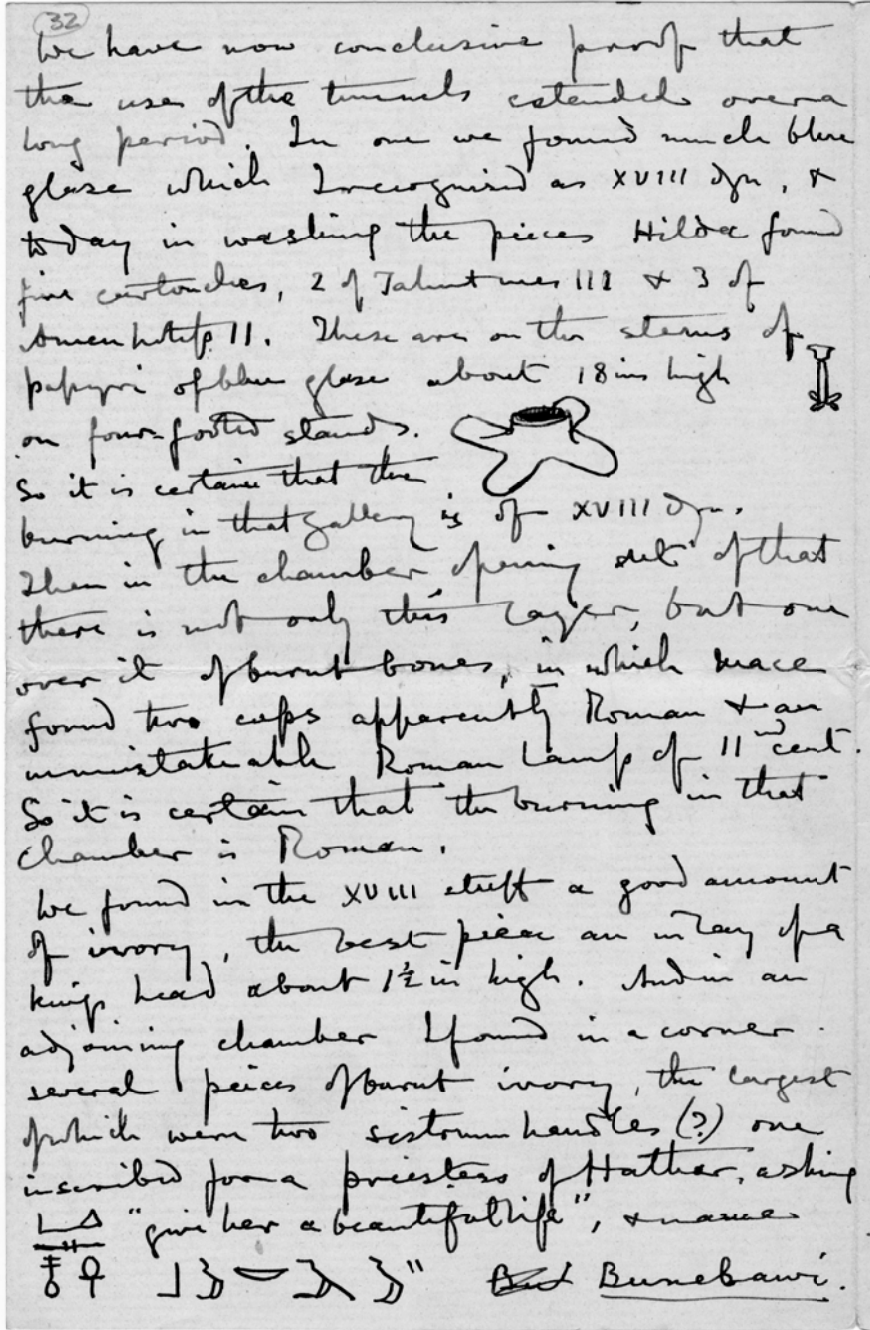 32
We have now conclusive proof that
the use of the tunnels extended over a
long period. In one we found much blue
glaze which I recognised as XVIII dyn, &
today in washing the pieces Hilda found
five cartouches, 2 of Tahutmes III & 3 of
Amenhotep II. These are on the stems of
papyri of blue glaze about 18 ins high
on four-footed stands.
So it is certain that the
burning in that gallery is of XVIII dyn.
Then in the chamber opening out of that
there is not only this layer, but one
over it of burnt bones, in which Mace
found two cups apparently Roman & an
unmistakeable Roman lamp of IInd cent.
So it is certain that the burning in that
chamber is Roman.
We found in the XVIII stuff a good amount
of ivory, the best piece an inlay of a
kings head about 1½ in high. And in an
adjoining chamber I found in a corner
several peices of burnt ivory, the largest
of which were two sistrum handles (?) one
inscribed for a priestess of Hathor, asking
"give her a beautiful life", & name
Bunebawi.